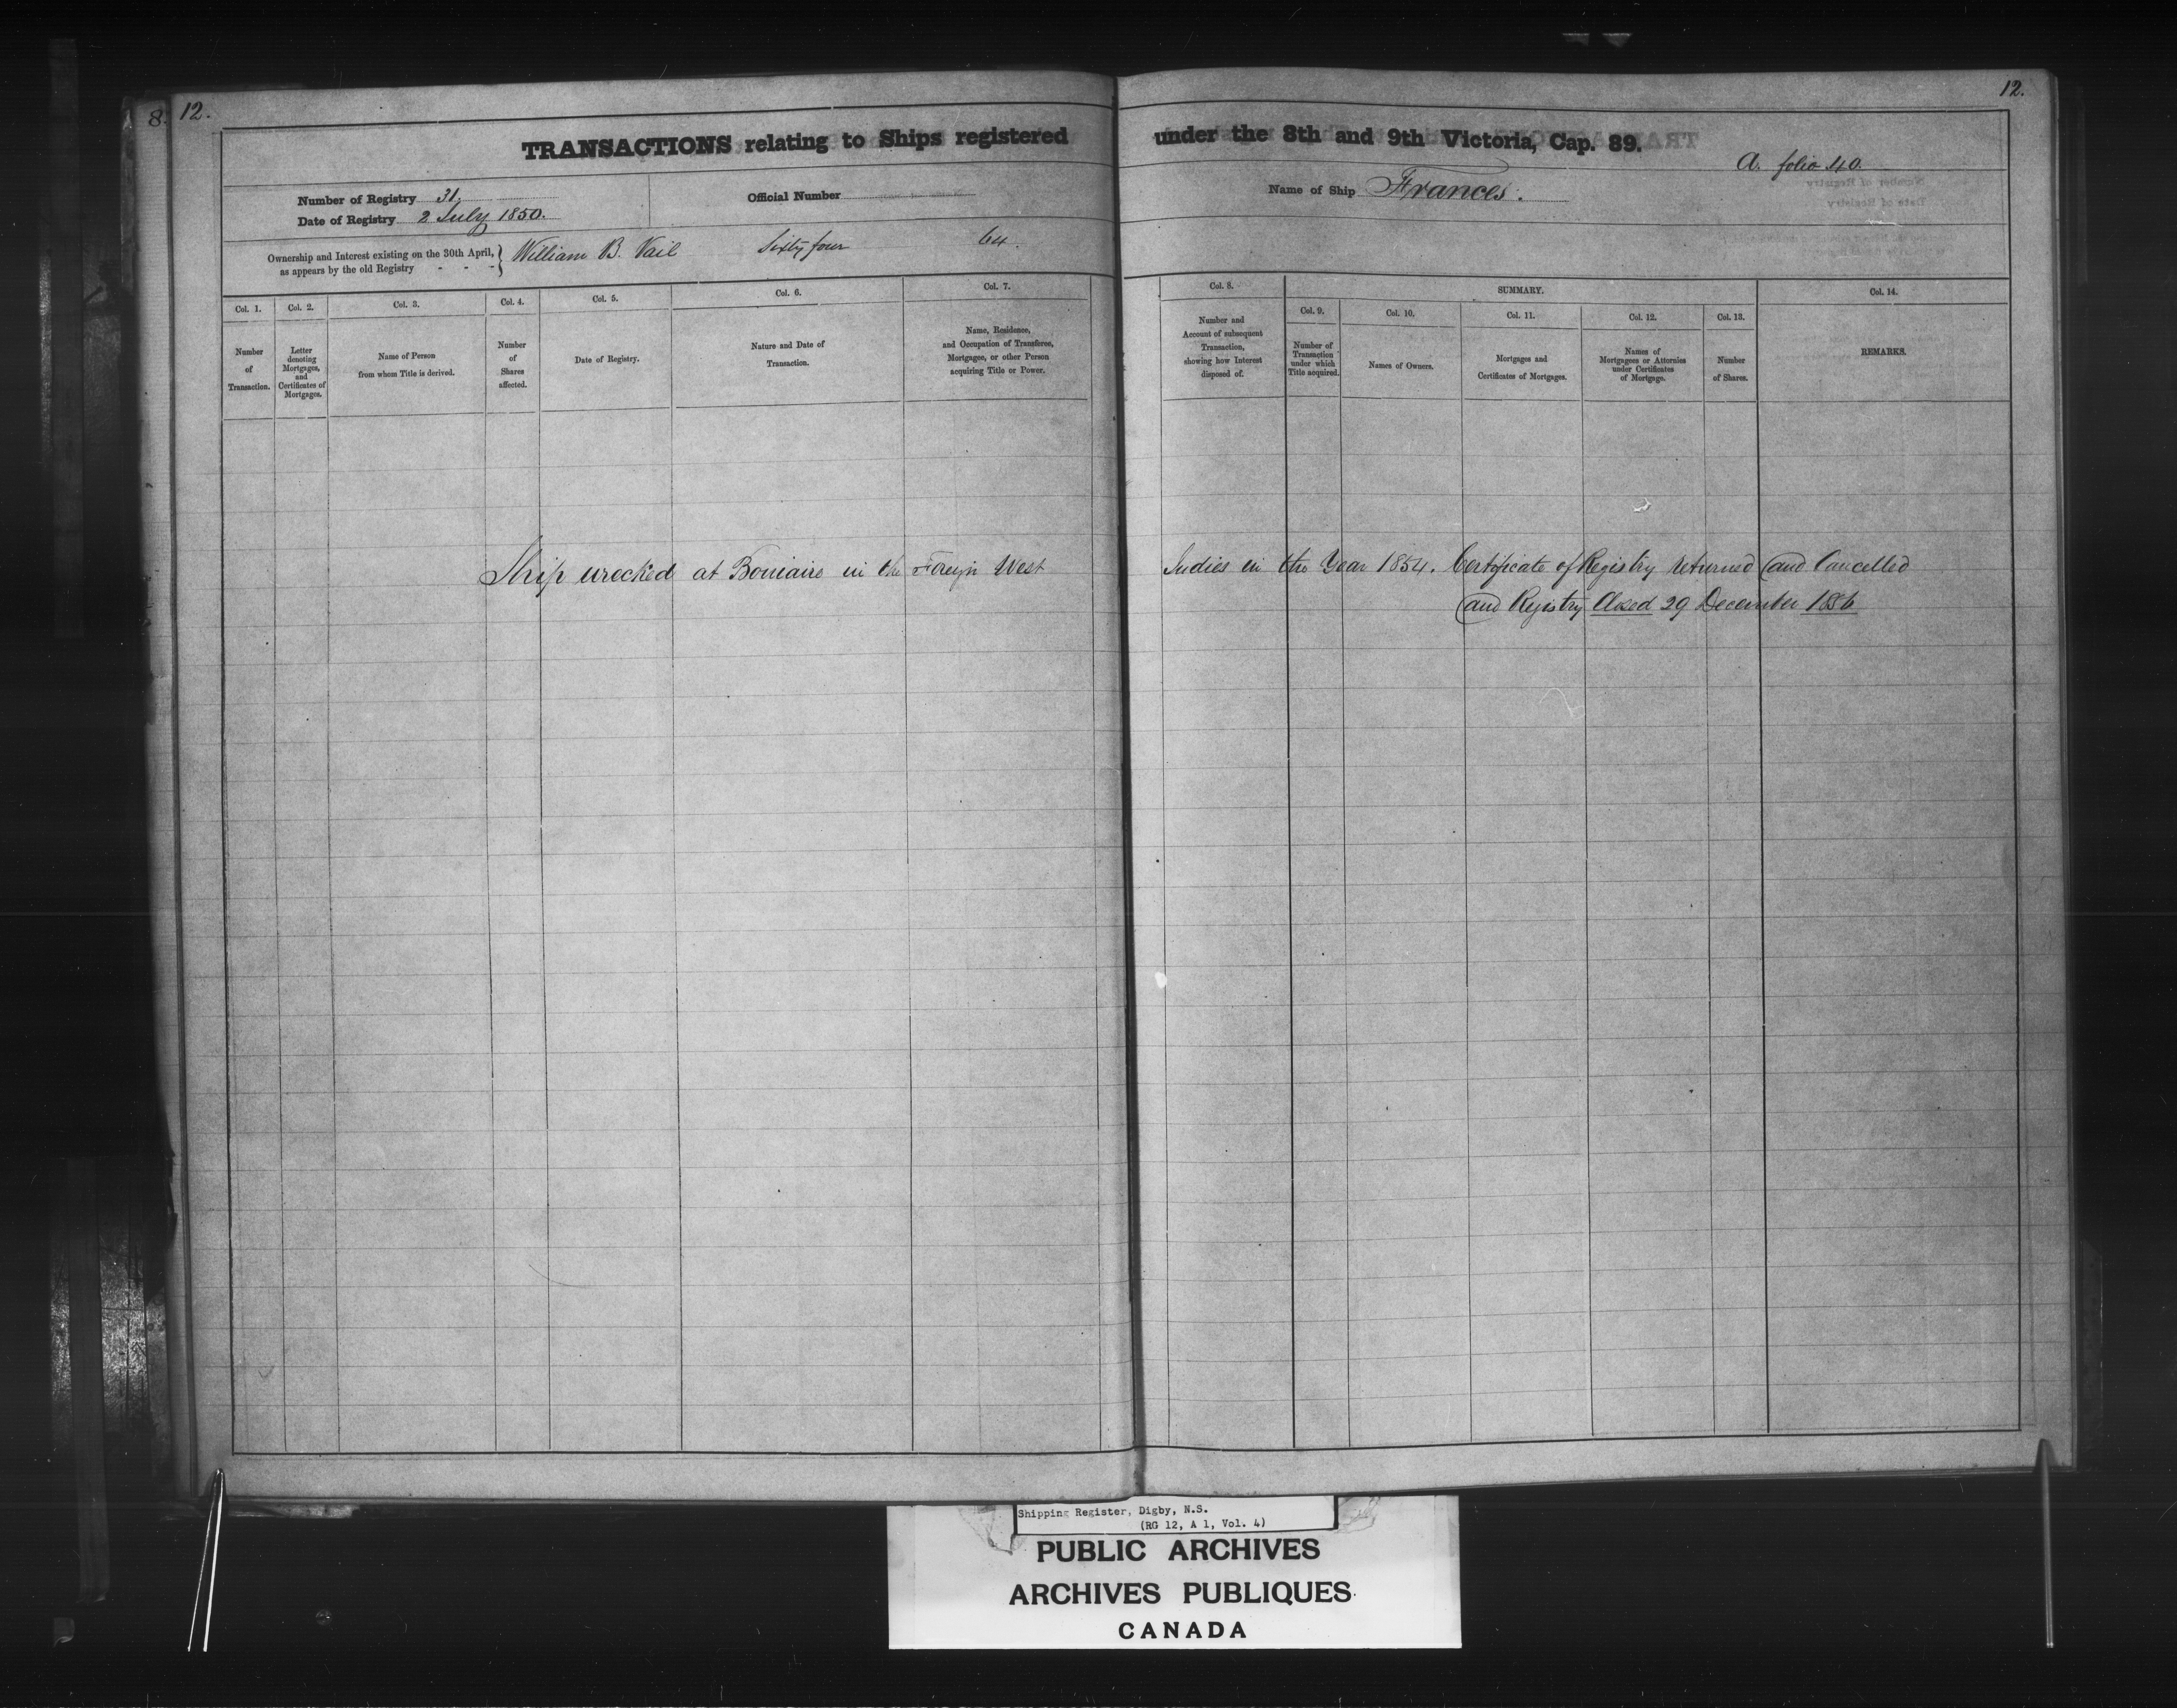 8. 12.
12.
TRANSACTIONS relating to Ships registered under the 8th and 9th Victoria, Cap. 89.
A. folio 40.
Number of Registry 31.
Date of Registry 2 July 1850.
Official Number
Name of Ship Frances.
Ownership and Interest existing on the 30th April, as appears by the old Registry - - - } William B. Vail Sixty four 64.
Col. 1. Number of Transaction.
Col. 2. Letter denoting Mortgages, and Certificates of Mortgages.
Col. 3. Name of Person from whom Title is derived.
Col. 4. Number of Shares affected.
Col. 5. Date of Registry.
Col. 6. Nature and Date of Transaction.
Col. 7. Name, Residence, and Occupation of Transferee, Mortgagee, or other Person acquiring Title or Power.
Col. 8. Number and Account of subsequent Transaction, showing how Interest disposed of.
SUMMARY.
Col. 9. Number of Transaction under which Title acquired.
Col. 10. Names of Owners.
Col. 11. Mortgages and Certificates of Mortgages.
Col. 12. Names of Mortgagees or Attornies under Certificates of Mortgage.
Col. 13. Number of Shares.
Col. 14. REMARKS.
Ship wrecked at Boniaire in the Foreign West Indies in the Year 1854. Certificate of Registry returned and Cancelled
and Registry Closed 29 December 1856
Shipping Register, Digby, N.S.
(RG 12, A 1, Vol. 4)
PUBLIC ARCHIVES
ARCHIVES PUBLIQUES
CANADA